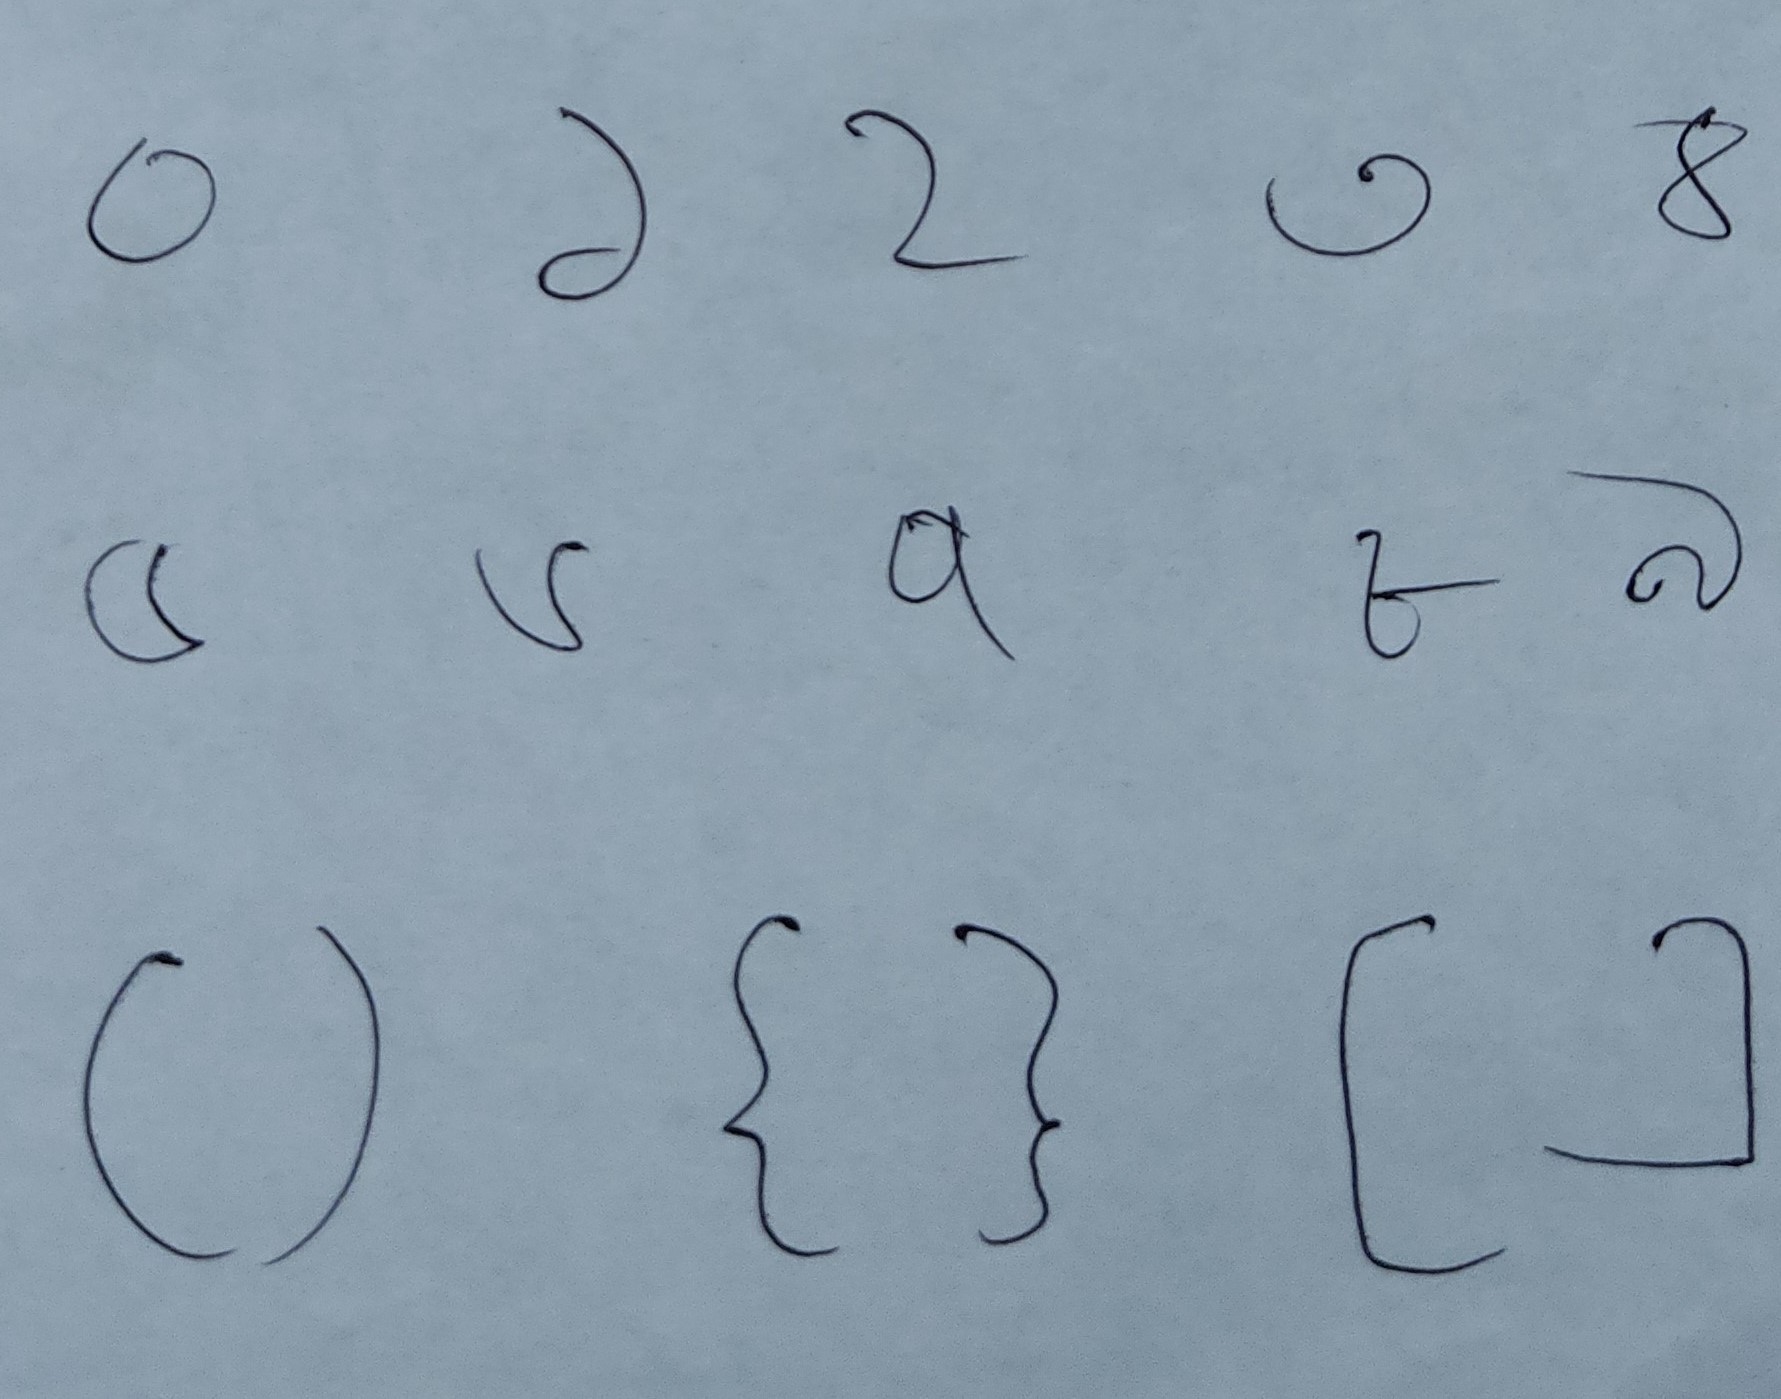 ০ ১ ২ ৩ ৪
৫ ৬ ৭ ৮ ৯
( ) { } [ ]